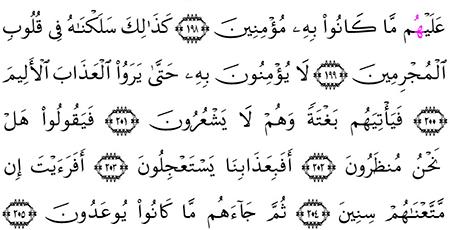 عَلَيْهُم مَّا كَانُواْ بِهِۦ مُؤْمِنِينَ ١٩٨ كَذَٰلِكَ سَلَكْنَٰهُ فِى قُلُوبِ
ٱلْمُجْرِمِينَ ١٩٩ لَا يُؤْمِنُونَ بِهِۦ حَتَّىٰ يَرَوُاْ ٱلْعَذَابَ ٱلْأَلِيمَ
٢٠٠ فَيَأْتِيَهُم بَغْتَةً وَهُمْ لَا يَشْعُرُونَ ٢٠١ فَيَقُولُواْ هَلْ
نَحْنُ مُنظَرُونَ ٢٠٢ أَفَبِعَذَابِنَا يَسْتَعْجِلُونَ ٢٠٣ أَفَرَءَيْتَ إِن
مَّتَّعْنَٰهُمْ سِنِينَ ٢٠٤ ثُمَّ جَآءَهُم مَّا كَانُواْ يُوعَدُونَ ٢٠٥